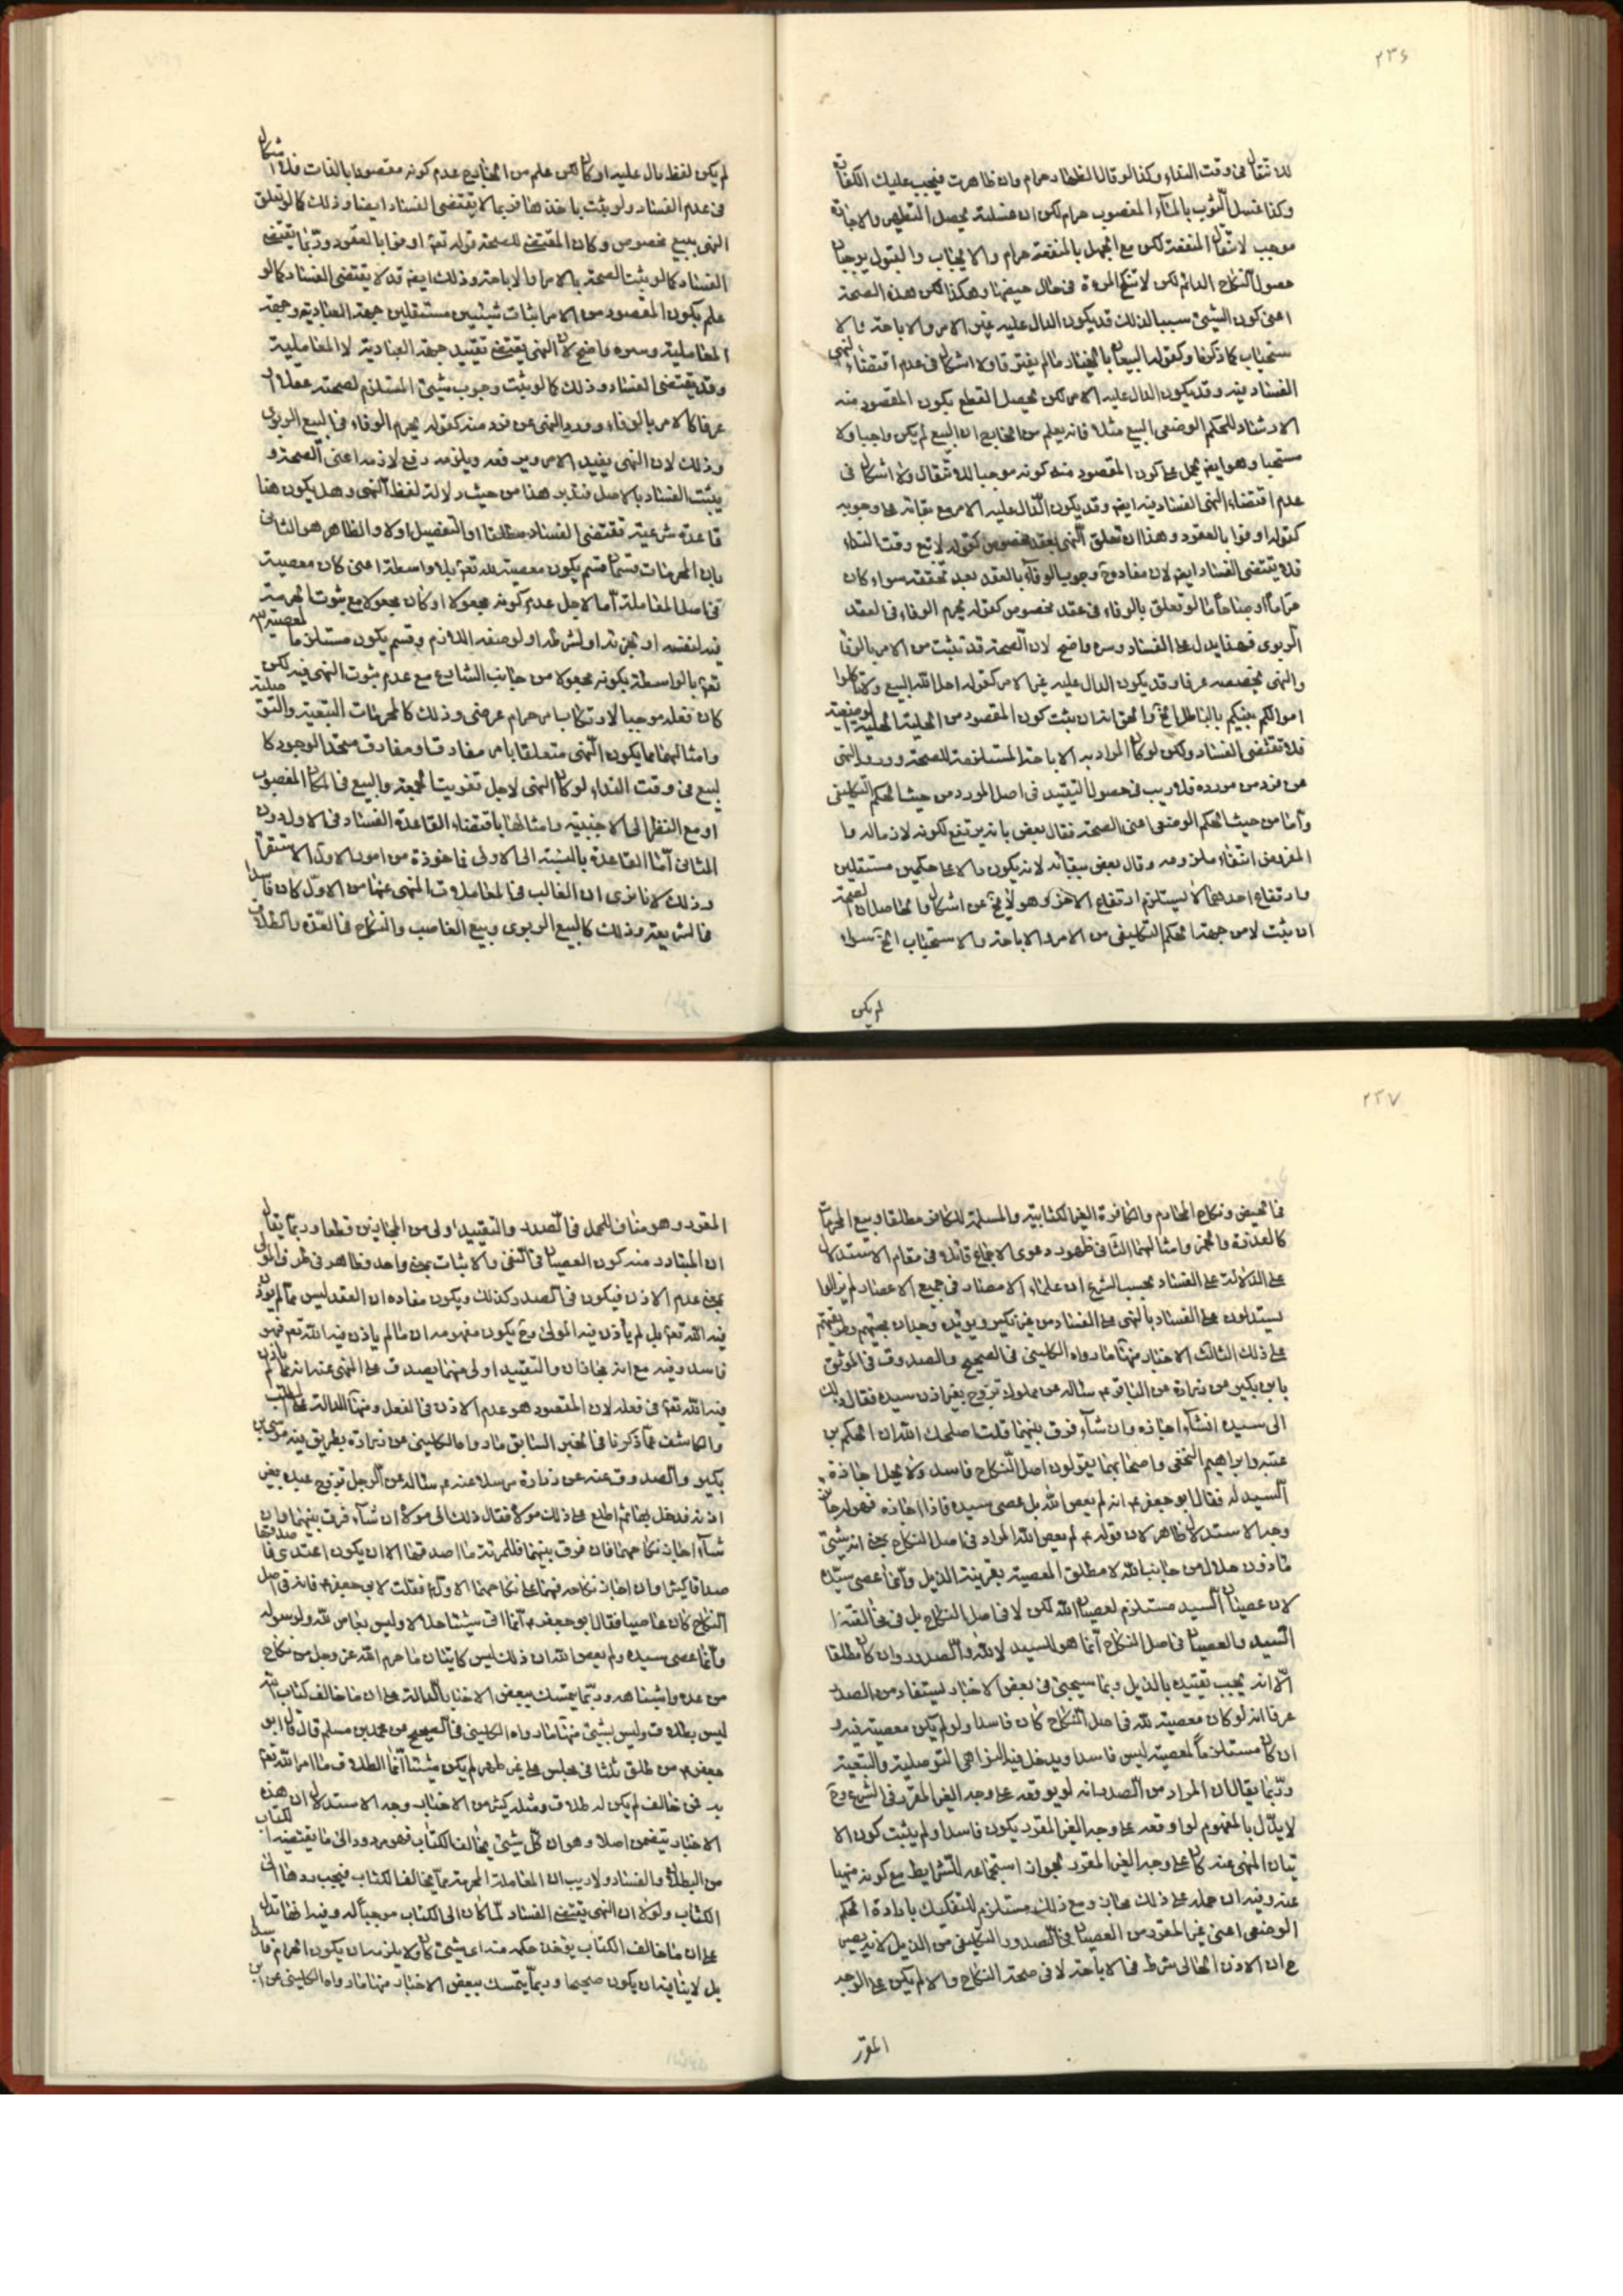 ٢٣٦
للانتقال فى وقت النداء وكذا لو قال الظهار حرام وان ظاهرت فيجب عليك الكفارة
وكذا غسل الثوب بالماء المغصوب حرام لكن ان غسلته يحصل التطهير والاجارة
موجب لانتقال المنفعة لكن مع الجهل بالمنفعة حرام والايجاب والقبول يوجبان
حصول النكاح الدائم لكن لا تنكح المرءة فى حال حيضها وهكذا لكن هذه الصحة
اعنى كون الشيئ سببا لذلك قد يكون الدال عليه غير الامر والاباحة والا
ستحباب كما ذكرنا وكقوله البيعان بالخيار ما لم يفترقا ولا اشكال فى عدم اقتضاء النهى
الفساد فيه وقد يكون الدال عليه الامر لكن يحصل القطع بكون المقصود منه
الارشاد للحكم الوضعى البيع مثلا فانه يعلم من الخارج ان البيع لم يكن واجبا ولا
مستحبا وهو ايضا يحمل على كون المقصود منه كونه موجبا للانتقال ولا اشكال فى
عدم اقتضاء النهى الفساد فيه ايضا وقد يكون الدال عليه الامر مع بقائه على وجوبه
كقوله اوفوا بالعقود وهذا ان تعلق النهى بعقد مخصوص كقوله لا تبع وقت النداء
فلا يقتضى الفساد ايضا لان مفاده وجوب الوفاء بالعقد بعد تحققه سواء كان
حراما او مباحا اما لو تعلق بالوفاء فى عقد مخصوص كقوله يحرم الوفاء فى العقد
الربوى فهذا يدل على الفساد وسره واضح لان الصحة قد تثبت من الامر بالوفا
والنهى يخصصه عرفا وقد يكون الدال عليه غير الامر كقوله احل الله البيع ولا تاكلوا
اموالكم بينكم بالباطل الخ والحق انه ان يثبت كون المقصود من الحلية الحلية الوضعية
فلا تقتضى الفساد ولكن لو كان المراد به الاباحة المستلزمة للصحة وورود النهى
عن فرد من موارده فلا ريب فى حصول التقييد فى اصل المورد من حيث الحكم التكليفى
واما من حيث الحكم الوضعى اعنى الصحة فقال بعض بانه يرتفع لكونه لازما له وا
المفروض انتفاء ملزومه وقال بعض ببقائه لانه يكون دالا على حكمين مستقلين
وارتفاع احدهما لا يستلزم ارتفاع الآخر وهو لا يخ عن اشكال والحاصل ان الصحة
ان يثبت لا من جهة الحكم التكليفى من الامر والاباحة والاستحباب الخ سواء
لم يكن
لم يكن لفظ دال عليه او كان لكن علم من الخارج عدم كونه مقصودا بالذات فلا اشكال
فى عدم الفساد ولو يثبت باحد هذا فربما لا يقتضى الفساد ايضا وذلك كما لو تعلق
النهى ببيع مخصوص وكان المقتضى للصحة قوله تعالى اوفوا بالعقود وربما يقتضى
الفساد كما لو يثبت الصحة بالامر والاباحة وذلك ايضا قد لا يقتضى الفساد كما لو
علم بكون المقصود من الامر اثبات شيئين مستقلين جهة العبادية وجهة
المعاملية وسره واضح لان النهى يقتضى تقييد جهة العبادية لا المعاملية
وقد يقتضى الفساد وذلك كما لو يثبت وجوب شيئ المستلزم لصحته عقلا او
عرفا كالامر بالوفاء وورود النهى عن فرد منه كقوله يحرم الوفاء فى البيع الربوى
وذلك لان النهى يفيد الامر ويرفعه ويلزمه رفع لازمه اعنى الصحة و
يثبت الفساد بالاصل فتدبر هذا من حيث دلالة لفظ النهى وهل يكون هنا
قاعدة شرعية تقتضى الفساد مطلقا او التفصيل اولا والظاهر هو الثانى
بان المحرمات قسمان قسم يكون معصية لله تعالى بلا واسطة اعنى كان معصية
فى اصل المعاملة اما لاجل عدم كونه مجعولا او كان مجعولا مع ثبوت الحرمة
فيه لنفسه او لجزئه او لشرطه او لوصفه اللازم وقسم يكون مستلزما لمعصية
تعالى بالواسطة بكونه مجعولا من جانب الشارع مع عدم ثبوت النهى فيه لكن
كان فعله موجبا لارتكاب امر حرام عرضى وذلك كالمحرمات التبعية والتو صلية
وامثالهما مما يكون النهى متعلقا بامر مفارق او مفارق متحد الوجود كا
لبيع فى وقت النداء لو كان النهى لاجل تفويت الجمعة والبيع فى المكان المغصوب
او مع النظر الى الاجنبية وامثالها باقتضاء القاعدة الفساد فى الاول دون
الثانى اما القاعدة بالنسبة الى الاولى فاخوذة من امور الاول الاستقراء
وذلك لانا نرى ان الغالب فى المعاملات المنهى عنها من الاول كان فاسدا
فى الشريعة وذلك كالبيع الربوى وبيع الغاصب والنكاح فى العدة والطلاق
٢٣٧
فى الحيض ونكاح المحارم والكافرة الغير الكتابية والمسلمة للكافر مطلقا وبيع المحرمات
كالعذرة والخمر وامثالهما الثانى ظهور دعوى الاجماع قائلا فى مقام الاستدلال
على الدلالة على الفساد بحسب الشرع ان علماء الامصار فى جميع الاعصار لم يزالوا
يستدلون على الفساد بالنهى على الفساد من غير نكير ويؤيده وجدان بحثهم وطريقتهم
على ذلك الثالث الاخبار منها ما رواه الكلينى فى الصحيح والصدوق فى الموثق
بابن بكير عن زرارة عن الباقر ع سئاله عن مملوك تزوج بغير اذن سيده فقال ذلك
الى سيده انشاء اجازه وان شاء فرق بينهما قلت اصلحك الله ان الحكم بن
عتيبه وابراهيم النخعى واصحابهما يقولون اصل النكاح فاسد ولا يحل اجازة
السيد له فقال ابو جعفر ع انه لم يعص الله بل عصى سيده فاذا اجازه فهو له جائز
وجه الاستدلال ظاهر لان قوله ع لم يعص الله المراد فى اصل النكاح بمعنى انه شيئ
ماذون حلال من جانب الله لا مطلق المعصية بقرينة الذيل وانما عصى سيده
لان عصيان السيد مستلزم لعصيان الله لكن لا فى اصل النكاح بل فى مخالفة
السيد والعصيان فى اصل النكاح انما هو للسيد لا لله والصدر وان كان مطلقا
الا انه يجب تقييده بالذيل وبما سيجيئ فى بعض الاخبار يستفاد من الصدر
عرفا انه لو كان معصية لله فى اصل النكاح كان فاسدا ولو لم يكن معصية فيه و
ان كان مستلزما لمعصية ليس فاسدا ويدخل فيه النواهى التوصلية والتبعية
وربما يقال ان المراد من الصدر انه لو يوقعه على وجه الغير المقرر فى الشرع وح
لا يدل بالمفهوم لو اوقعه على وجه الغير المقرر يكون فاسدا ولم يثبت كون الا
تيان المنهى عنه كان على وجه الغير المقرر لجواز استجماعه للشرايط مع كونه منهيا
عنه وفيه ان حمله على ذلك مجاز ومع ذلك مستلزم للتفكيك بارادة الحكم
الوضعى اعنى غير المقرر من العصيان فى الصدور التكليفى من الذيل لانه يصير
ح ان الاذن الحالى شرط فى الاباحة لا فى صحة النكاح والا لم يكن على الوجه
المقرر
المقرر وهو مناف للحمل فى الصدر والتقييد اولى من المجازين قطعا وربما يقال
ان المتبادر منه كون العصيان فى النفى والاثبات بمعنى واحد وظاهر فى طرف المولى
بمعنى عدم الاذن فيكون فى الصدر كذلك ويكون مفاده ان العقد ليس مما لم يؤذن
فيه الله تعالى بل لم يأذن فيه المولى وح يكون مفهومه ان ما لم ياذن فيه الله تعالى فهو
فاسد وفيه مع انه مجازان والتقييد اولى منهما يصدق على المنهى عنه انه مما لم ياذن
فيه الله تعالى فى فعله لان المقصود هو عدم الاذن فى الفعل ومنها الدالة على المطلب
والكاشف عما ذكرنا فى الخبر السابق ما رواه الكلينى عن زرارة بطريق فيه موسى بن
بكير والصدوق عنه عن زرارة مرسلا عنه ع سئاله عن الرجل تزوج عبده بغير
اذنه فدخل بها ثم اطلع على ذلك مولاه فقال ذلك الى مولاه ان شاء فرق بينهما وان
شاء اجاز نكاحهما فان فرق بينهما فللمرئة ما اصدقها الا ان يكون اعتدى فاصدقها
صداقا كثيرا وان اجاز نكاحه فهما على نكاحهما الاول فقلت لابى جعفر ع فانه فى اصل
النكاح كان عاصيا فقال ابو جعفر ع انما اتى شيئا حلالا وليس بعاص لله ولرسوله
وانما عصى سيده ولم يعص الله ان ذلك ليس كاتيان ما حرم الله عز وجل من نكاح
من عدة واشباهه وربما يتمسك ببعض الاخبار الدالة على ان ما خالف كتاب الله
ليس بطلاق وليس بشيئ منها ما رواه الكلينى فى الصحيح عن محمد بن مسلم قال قال ابو
جعفر ع من طلق ثلثا فى مجلس على غير طهر لم يكن شيئا انما الطلاق ما امر الله تعالى
به فمن خالف لم يكن له طلاق ومثله كثير من الاخبار وجه الاستدلال ان هذه
الاخبار يتضمن اصلا وهو ان كل شيئ يخالف الكتاب فهو مردود الى ما يقتضيه الكتاب
من البطلان والفساد ولا ريب ان المعاملة المحرمة مما يخالف الكتاب فيجب ردها الى
الكتاب ولولا ان النهى يقتضى الفساد لما كان الى الكتاب موجبا له وفيه انها تدل
على ان ما خالف الكتاب يؤخذ حكمه منه اى شيئ كان ولا يلزمه ان يكون الحرام فاسدا
بل لا ينافيه ان يكون صحيحا وربما يتمسك ببعض الاخبار منها ما رواه الكلينى عن ابن